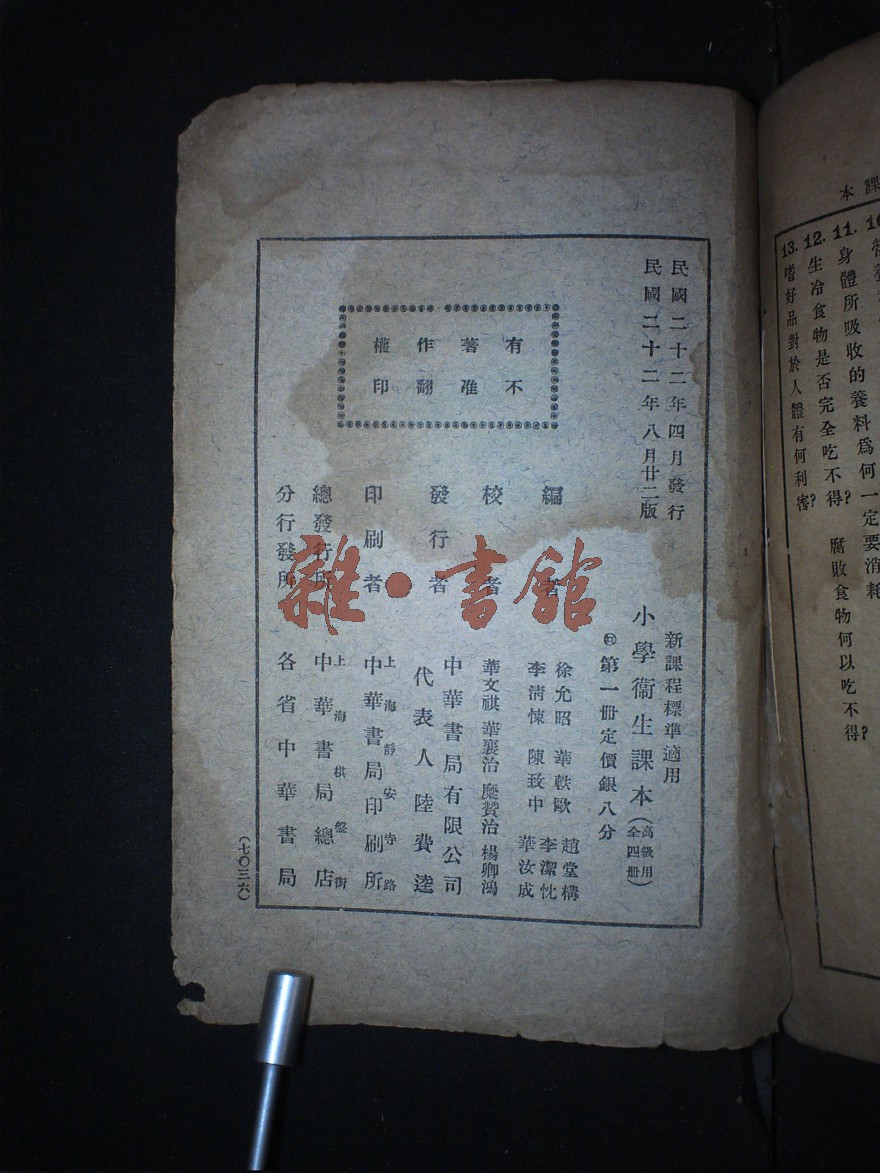 課本
營養
11.身體所吸收的養料爲何一定要消耗
12.生冷食物是否完全吃不得？腐敗食物何以吃不得？
13.嗜好品對於人體有何利害？
民國二十二年四月發行
民國二十二年八月廿二版
有著作權
不准翻印
新課程標準適用
小學衞生課本（高級用全四册）
第一册定價銀八分
編者
徐允昭 華軼歐 趙堂構
李清悚 陳致中 李潔忱
華汝成
校者
華文祺 華襄治 糜贊治 楊卿鴻
發行者
中華書局有限公司
代表人陸費逵
印刷者
上海靜安寺路
中華書局印刷所
總發行所
上海棋盤街
中華書局總店
分行發所
各省中華書局
（七〇三六）
雜·書館